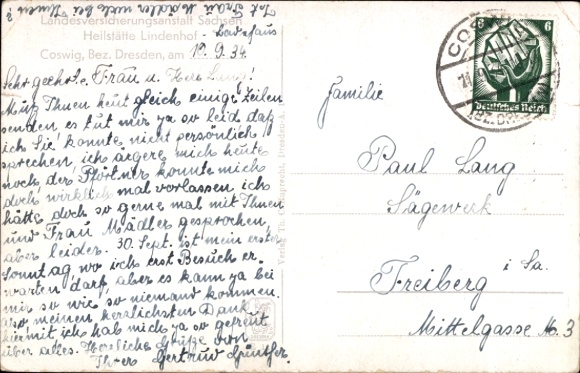 Ist Frau Mädler nicht bei Ihnen?
Landesversicherungsanstalt Sachsen
Heilstätte Lindenhof
Coswig, Bez. Dresden, am 19.9.34.
Sehr geehrte Frau u. Herr Lang!
Muß Ihnen heut gleich einige Zeilen
senden es tut mir ya so leid daß
ich Sie konnte nicht persönlich
sprechen, ich ärgere mich heute
noch, der Pförtner konnte mich
doch wirklich mal vorlassen ich
hätte doch so gerne mal mit Ihnen
und Frau Mädler gesprochen,
aber leider. 30. Sept. ist mein erster
Sonntag wo ich erst Besuch er-
warten darf, aber es kann ya bei
mir so wie so niemand kommen.
also meinen herzlichsten Dank
hiermit ich hab mich ya so gefreut
über alles. Herzliche Grüße von
Gertrud Günther.
Familie
Paul Lang
Sägewerk
Freiberg i Sa.
Mittelgasse No. 3
6 6
Deutsches Reich